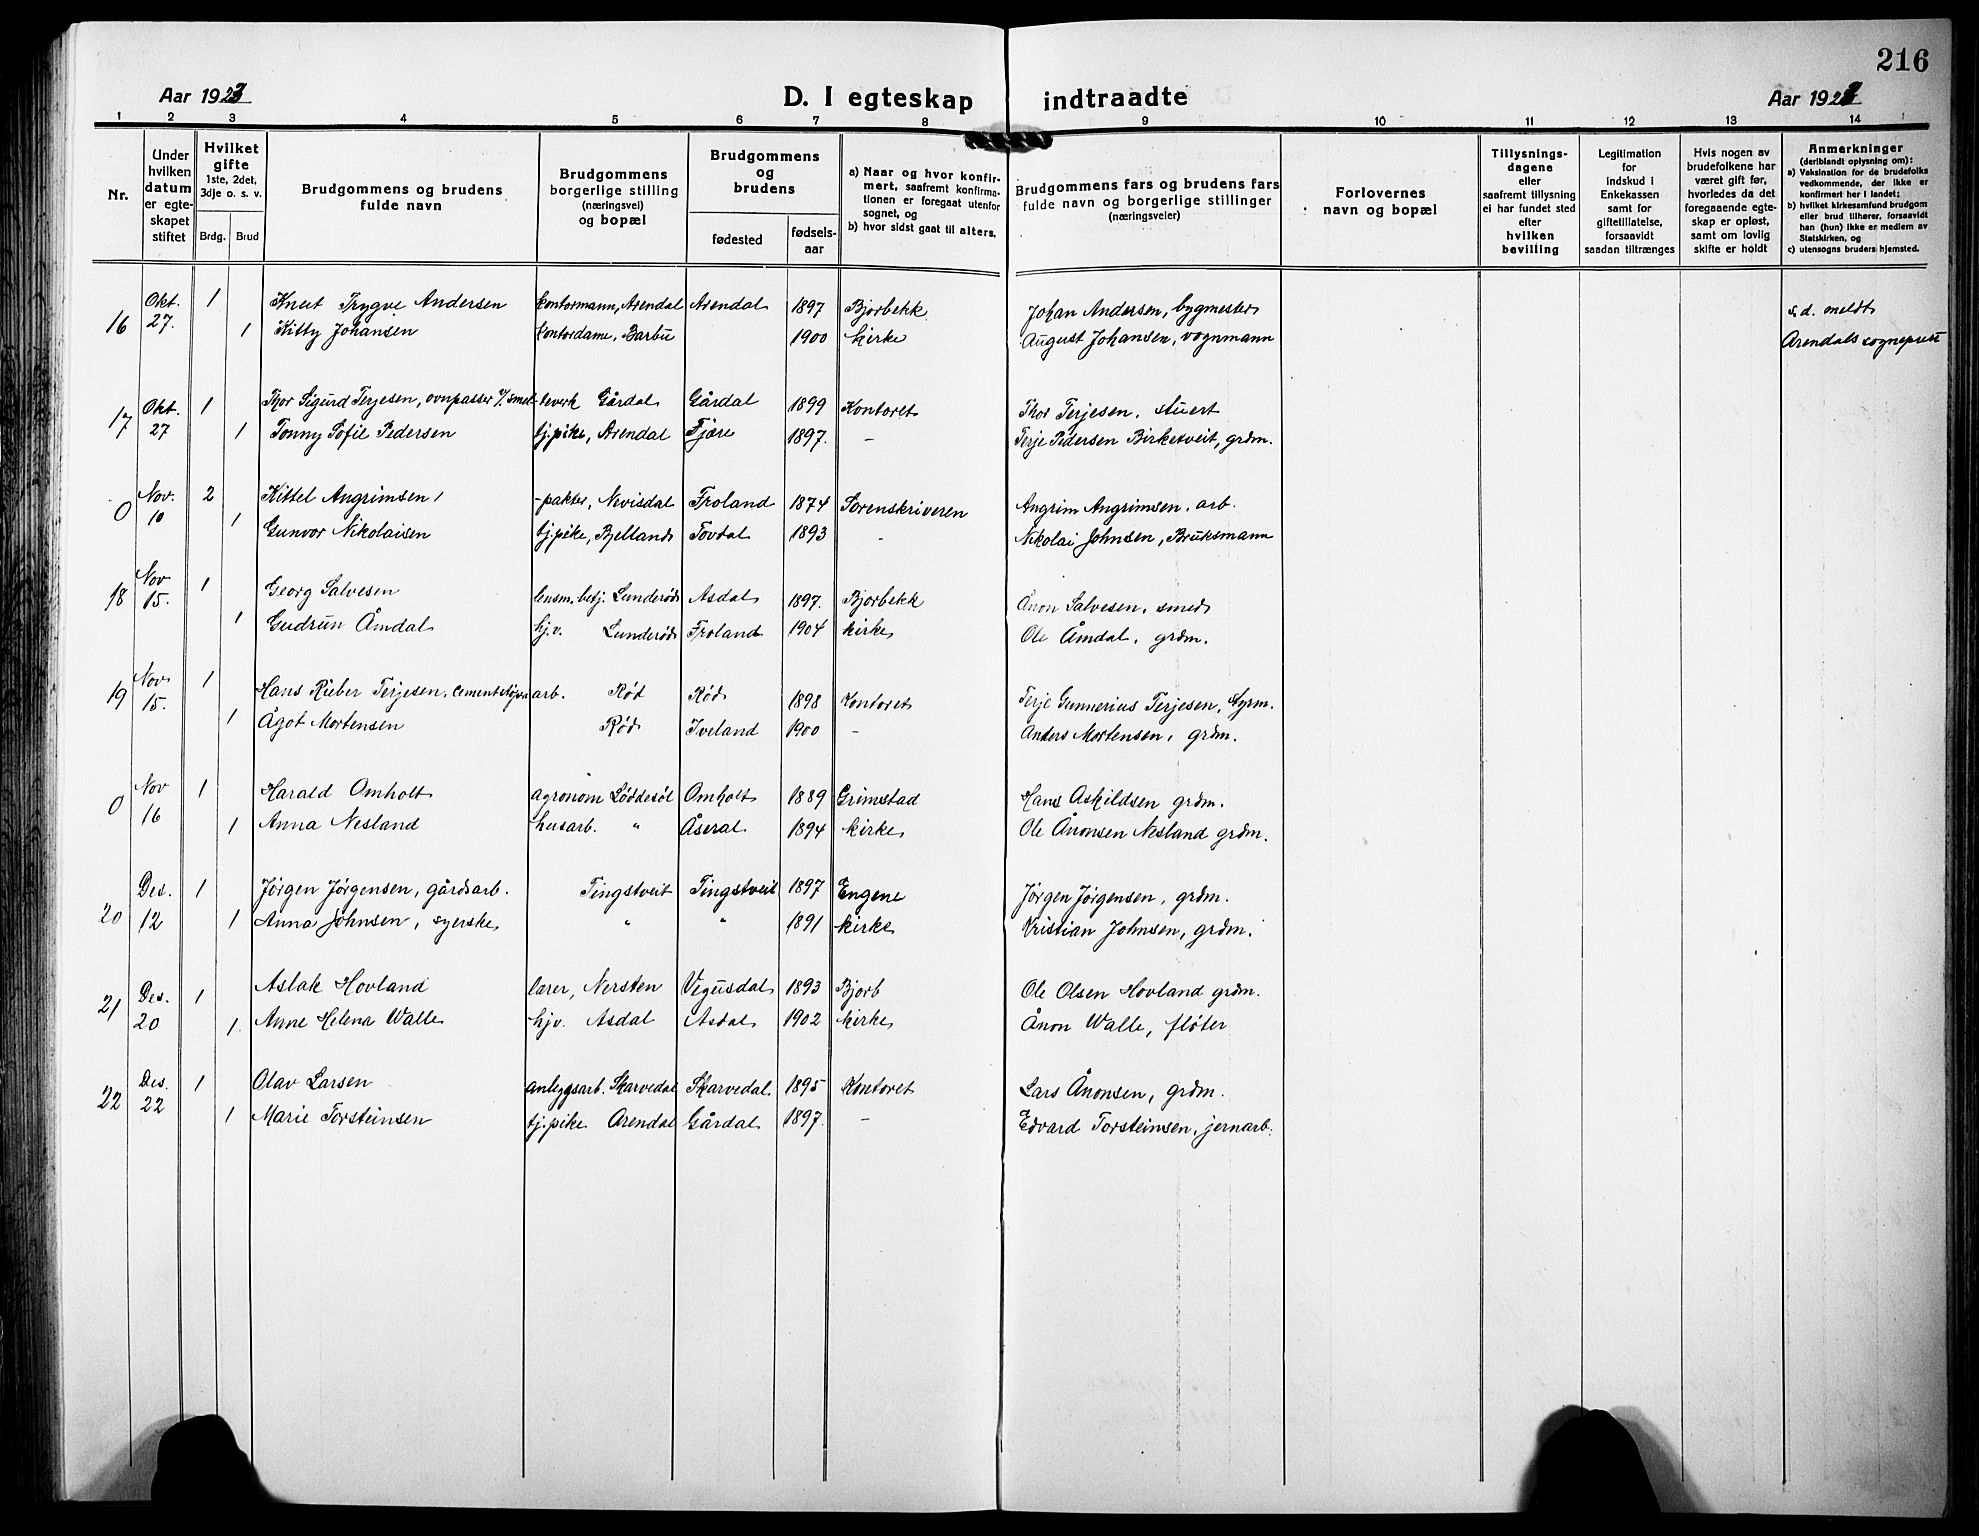 216
Aar 1923 D. I egteskap indtraadte Aar 192
1 2 3 4 5 6 7 8 9 10 11 12 13 14
Nr.
Under hvilken datum er egteskapet stiftet
Hvilket gifte 1ste, 2det, 3dje o. s. v.
Brdg. Brud
Brudgommens og brudens fulde navn
Brudgommens borgerlige stilling (næringsvei) og bopæl
Brudgommens og brudens
fødested fødselsaar
a) Naar og hvor konfirmert, saafremt konfirmationen er foregaat utenfor sognet, og
b) hvor sidst gaat til alters.
Brudgommens fars og brudens fars fulde navn og borgerlige stillinger (næringsveier)
Forlovernes navn og bopæl
Tillysningsdagene eller saafremt tillysning ei har fundet sted efter hvilken bevilling
Legitimation for indskud i Enkekassen samt for giftetillatelse, forsaavidt saadan tiltrænges
Hvis nogen av brudefolkene har været gift før, hvorledes da det foregaaende egteskap er opløst, samt om lovlig skifte er holdt
Anmerkninger (deriblandt oplysning om):
a) Vaksination for de brudefolks vedkommende, der ikke er konfirmert her i landet;
b) hvilket kirkesamfund brudgom eller brud tilhører, forsaavidt han (hun) ikke er medlem av Statskirken, og
c) utensogns bruders hjemsted.
16 Okt. 27. 1 Knut Trygve Andersen kontormann, Arendal Arendal 1897 Bjorbekk Johan Andersen, bygmester s.d. meldt
1 Kitty Johansen kontordame, Barbu 1900 kirke August Johansen, vognmann Arendals sogneprest
17 Okt. 27 1 Thor Sigurd Terjesen, ovnpasser v/ smelteverk Gårdal Gårdal 1899 Kontoret Thor Terjesen, stuert
1 Tonny Sofie Pedersen tj.pike, Arendal Fjære 1897. – Terje Pedersen Birketveit, grdm.
0 Nov. 10 2 Kittel Angrimsen, -pakter, Nevisdal Froland 1874 Sorenskriveren Angrim Angrimsen, arb.
1 Gunvor Nikolaisen tj.pike, Bjelland Tovdal 1893 - Nikolai Johnsen, Bruksmann
18 Nov 15. 1 Georg Salvesen lensm.betj. Lunderød Asdal 1897. Bjorbekk Ånon Salvesen, smed
1 Gudrun Åmdal hj.v. Lunderød Froland 1904 kirke Ole Åmdal, grdm.
19 Nov 15. 1 Hans Rieber Terjesen, cementstøperiarb. Rød Rød 1898 Kontoret Terje Gunnerius Terjesen, styrm.
1 Ågot Mortensen Rød Iveland 1900 – Anders Mortensen, grdm.
0 Nov 16 1 Harald Omholt agronom Løddesøl Omholt 1889 Grimstad Hans Askildsen grdm.
1 Anna Nesland husarb. " Åseral 1894 kirke Ole Ånonsen Nesland grdm.
20 Des. 12 1 Jørgen Jørgensen, gårdsarb. Tingstveit Tingstveit 1897 Engene Jørgen Jørgensen, grdm.
1 Anna Johnsen, syerske " " 1891 kirke Kristian Johnsen, grdm.
21 Des. 20 1 Aslak Hovland lærer, Nersten Vegusdal 1893 Bjorb Ole Olsen Hovland grdm.
1. Anne Helena Walle hjv. Asdal Asdal 1902 kirke Ånon Walle, fløter
22 Des. 22 1 Olav Larsen anleggsarb. Skarvedal Skarvedal 1895 Kontoret Lars Ånonsen, grdm.
1 Marie Torsteinsen tj.pike Arendal Gårdal 1897. – Edvard Torsteinsen, jernarb.